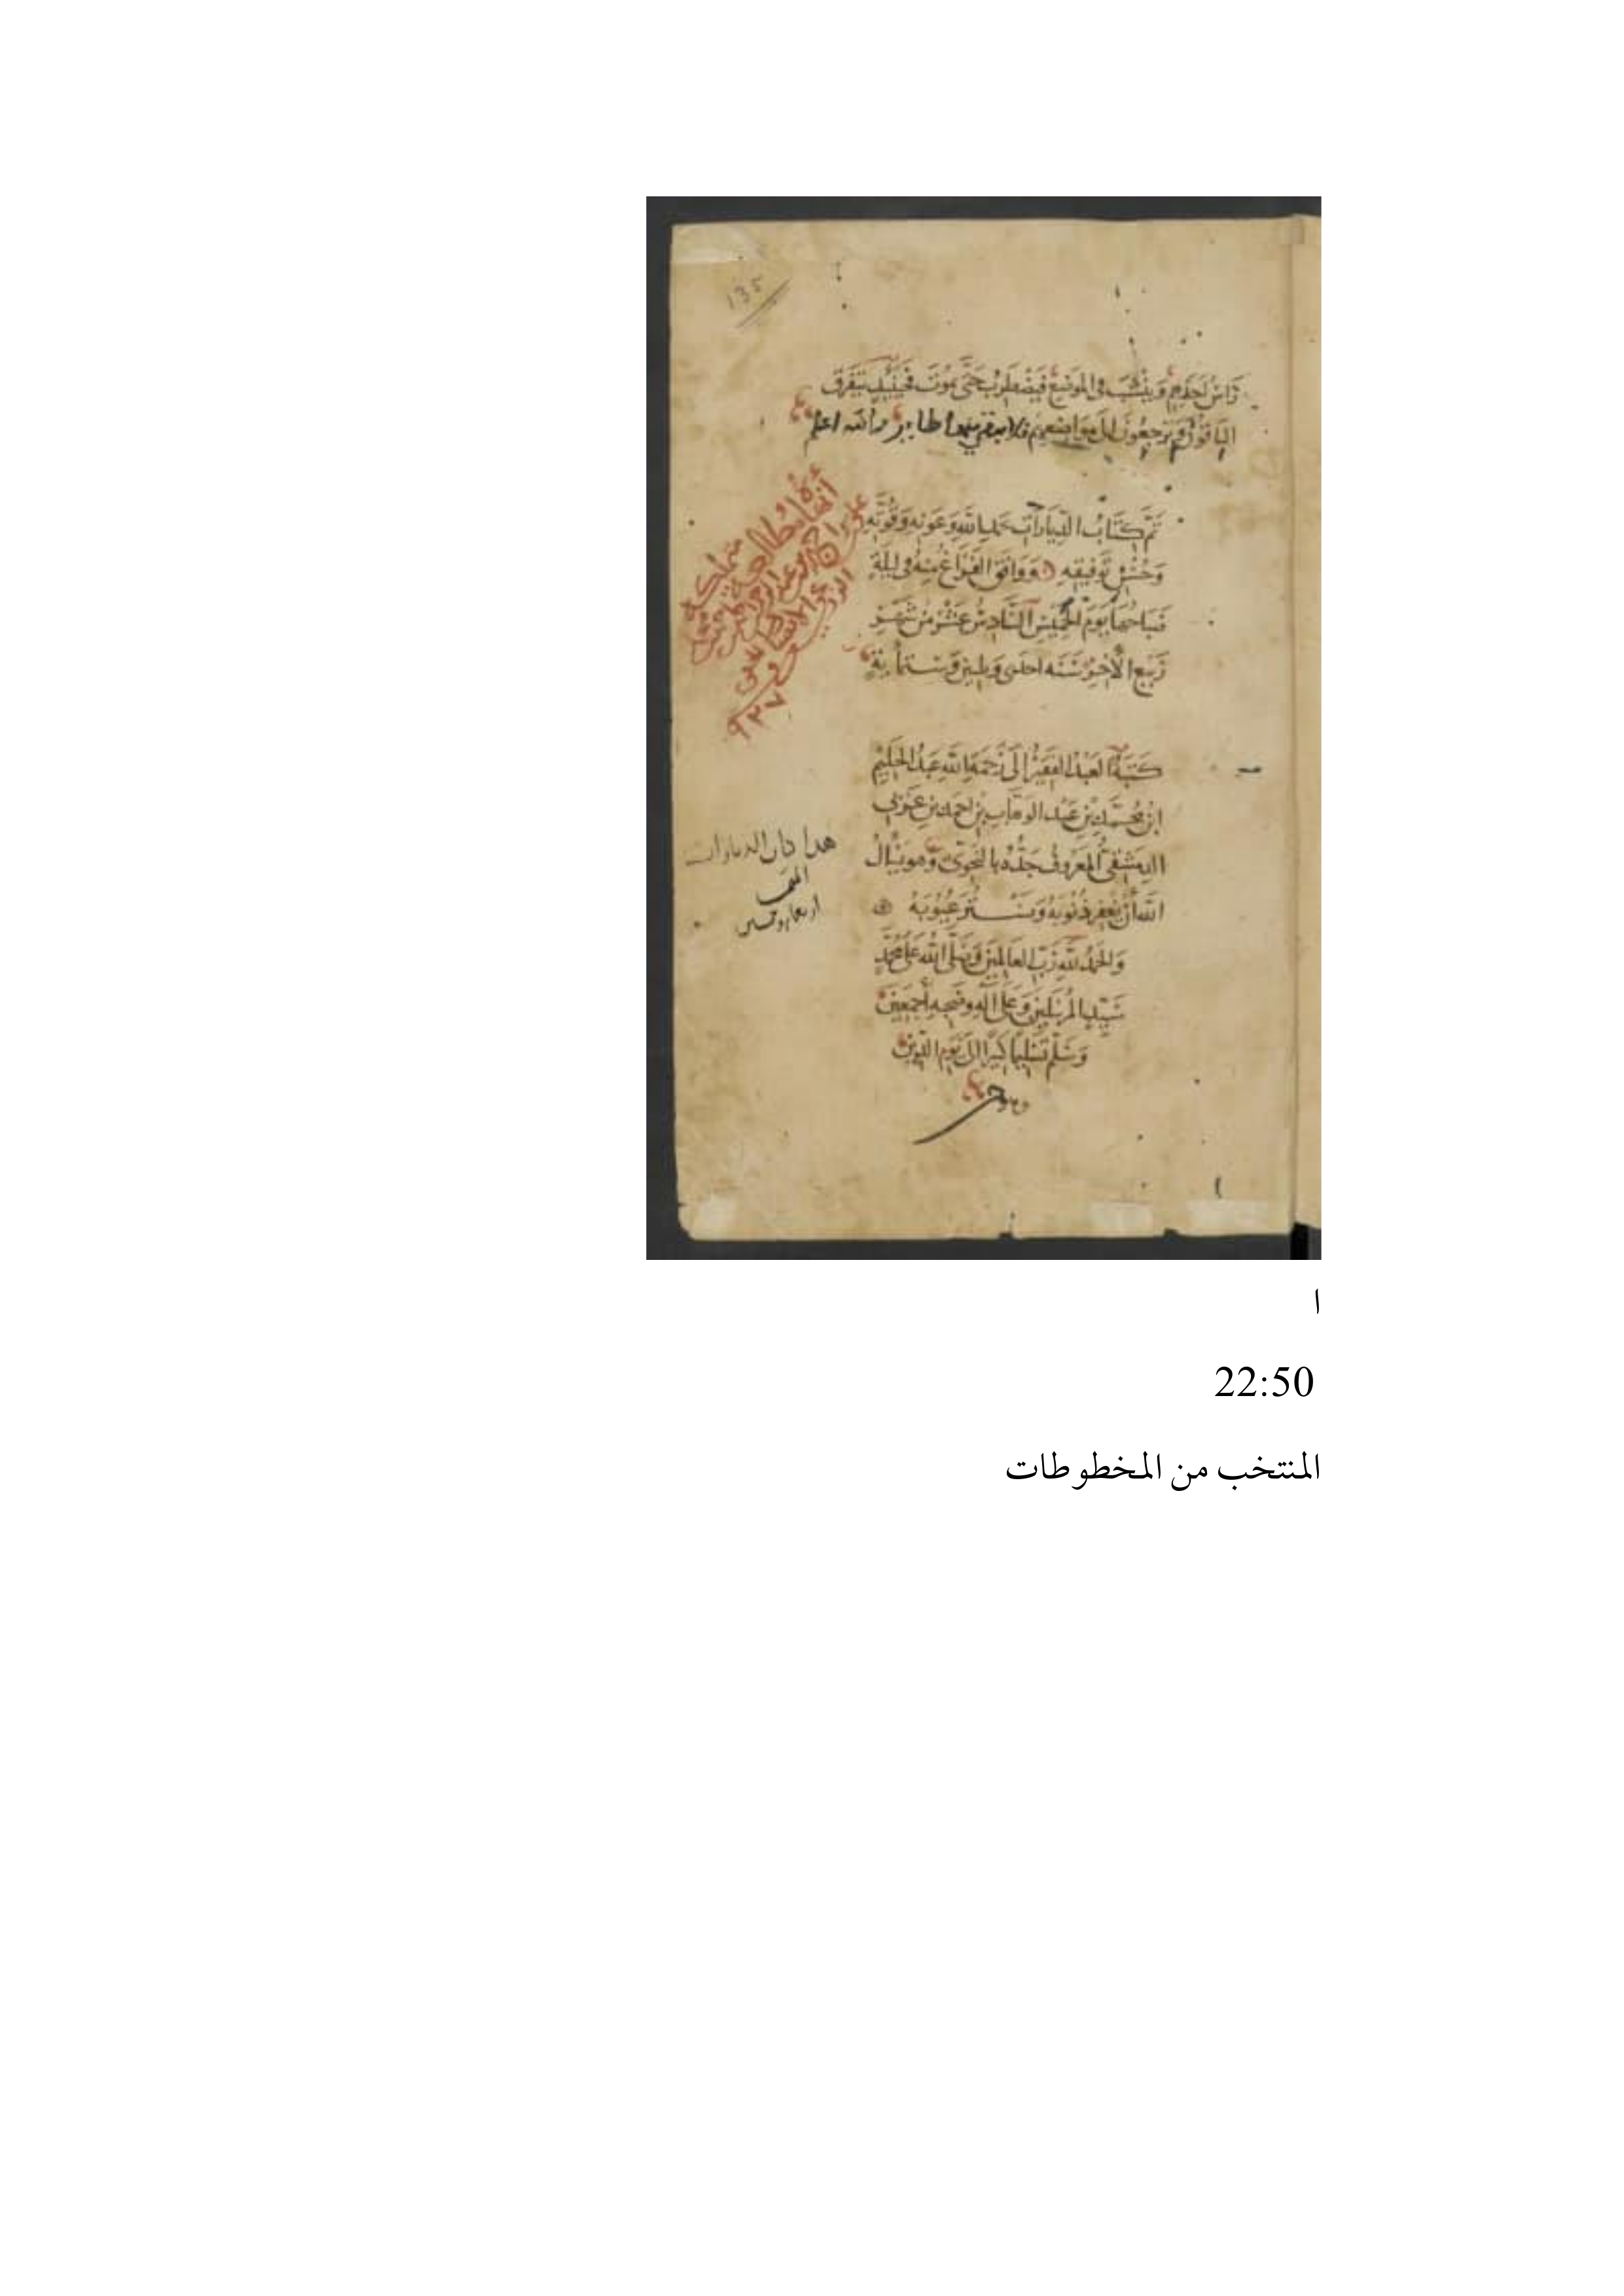 135
رَأسُ أحَدِهِم وَيَنْشَبَ في المَوضِعِ فَيَضْطَرِبُ حَتَّى يَموُتَ فَحِينَئِذٍ يَتَفَرَّق
البَاقوُنَ وَيَرجِعُونَ إلى مَوَاضِعِهِم فلا يبقى منها طاير والله اعلم
تَمَّ كتَابُ الدِّيَارَاتِ بحَمدِ اللَّهِ وَعَونِهِ وَقُوَّتِهِ
وَحُسْنِ تَوفِيقِهِ وَوَافَقَ الفَرَاغُ مِنهُ في ليلَةِ
صَبَاحُهَا يَوم الخَمِيس السَّادِسُ عَشَر مِن شَهرِ
رَبيعِ الآخِرِ سَنَه احدى وثلثين وستمايةٍ
أنهاه مطالعة
على
٩٢٧
كَتَبَهُ العَبْدُ الفَقِيرُ إلَى رَحمَةِ اللَّهِ عَبدُ الحَلِيم
ابنُ مُحمَّدِ بنِ عَبْد الوَهَّابِ بنِ احمَد بنِ
الدِمَشْقيّ المَعرُوفُ جَدُّهُ بالنَحوِىّ وَهو يَسْألُ
اللَّهَ أن يَغْفِرَ ذُنوبَهُ وَيَسْتُرَ عُيُوبَهُ
وَالحَمْدُ للَّهِ رَبِّ العَالمِينَ وَصَلَّى اللَّه عَلى مُحَمَّدٍ
سَيِّدِ المُرْسَلِينَ وَعَلَى آلِهِ وصَحبِهِ أجمَعِينَ
وَسَلَّمَ تَسْلِيمًا كثيرًا إلَى يَوم الدِّين
هذا كتاب الديارات
ا
22:50
المنتخب من المخطوطات